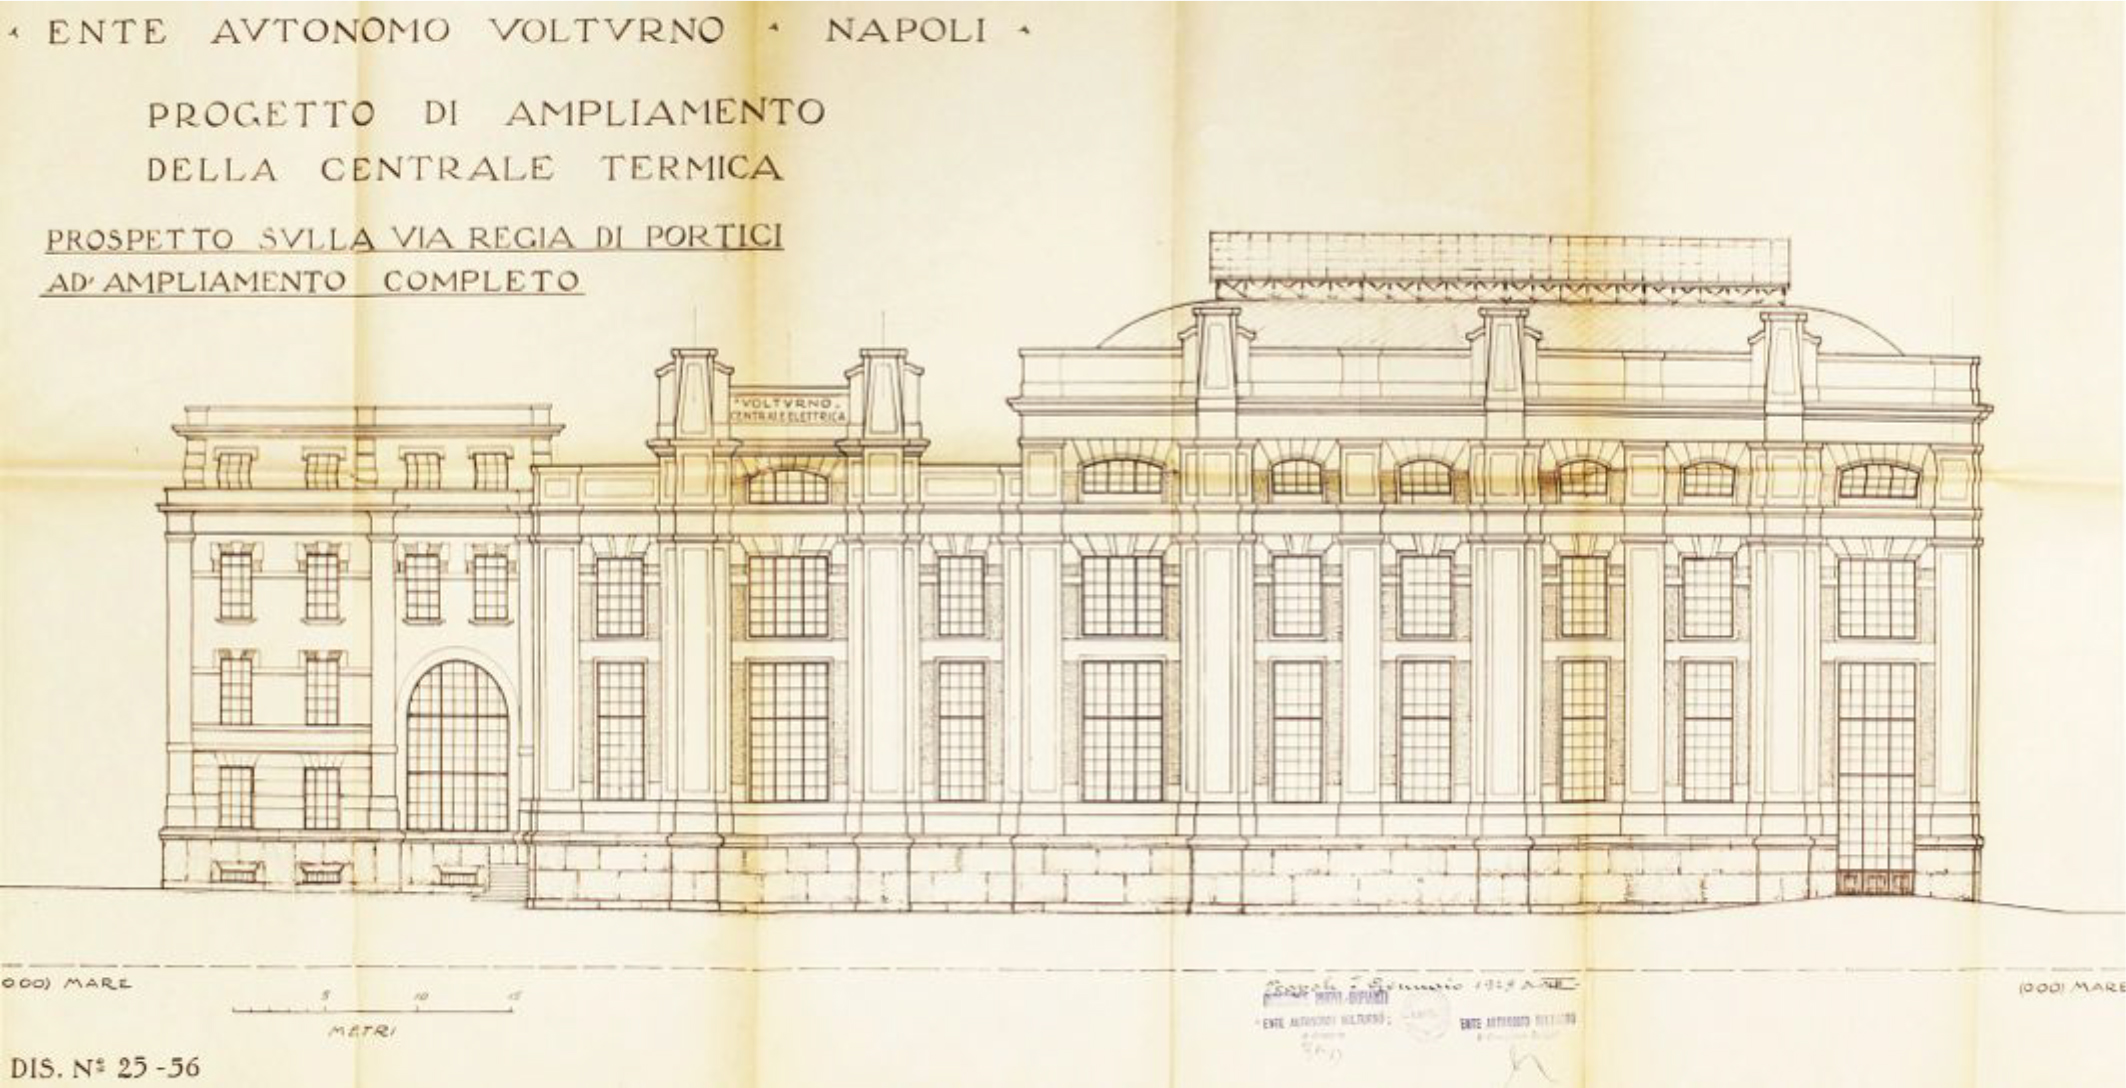 ENTE AVTONOMO VOLTVRNO · NAPOLI ·
PROGETTO DI AMPLIAMENTO
DELLA CENTRALE TERMICA
PROSPETTO SVLLA VIA REGIA DI PORTICI
AD' AMPLIAMENTO COMPLETO
"VOLTVRNO"
CENTRALE ELETTRICA
(000) MARE
(000) MARE
5 10 15
METRI
Gennaio 1929
ENTE AUTONOMO VOLTURNO
ENTE AUTONOMO VOLTURNO
DIS. Nº 25-56